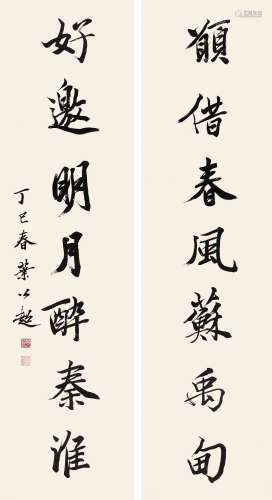 顧借春風蘇禹甸
好邀明月醉秦淮
丁巳春葉公超